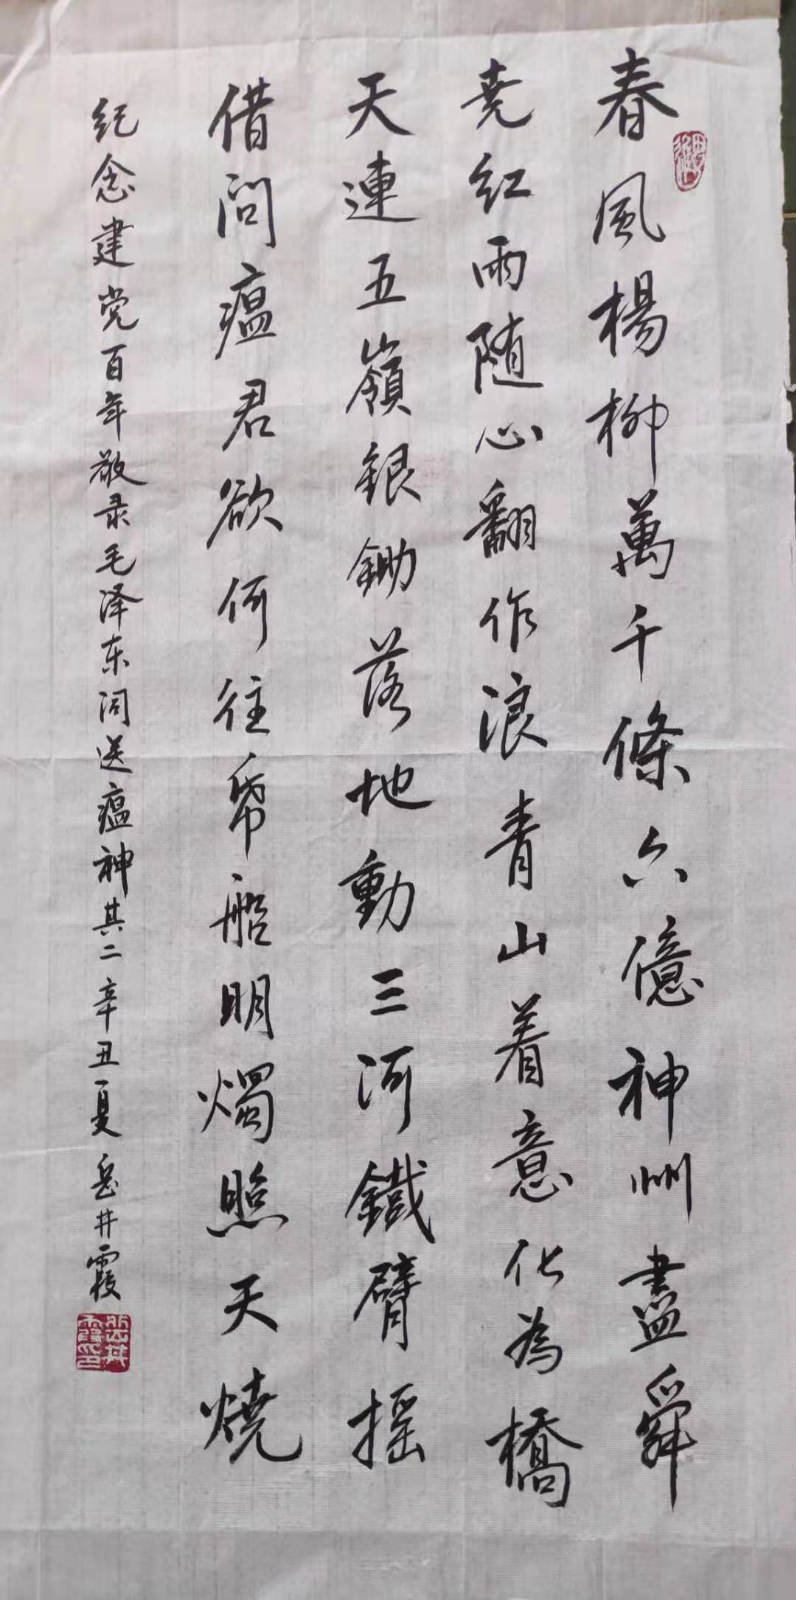 春風楊柳萬千條六億神州盡舜
尭紅雨随心翻作浪青山着意化為橋
天連五嶺銀鋤落地動三河鐵臂摇
借问瘟君欲何往帋船明燭照天燒
纪念建党百年敬录毛泽东词送瘟神其二辛丑夏岳井霞